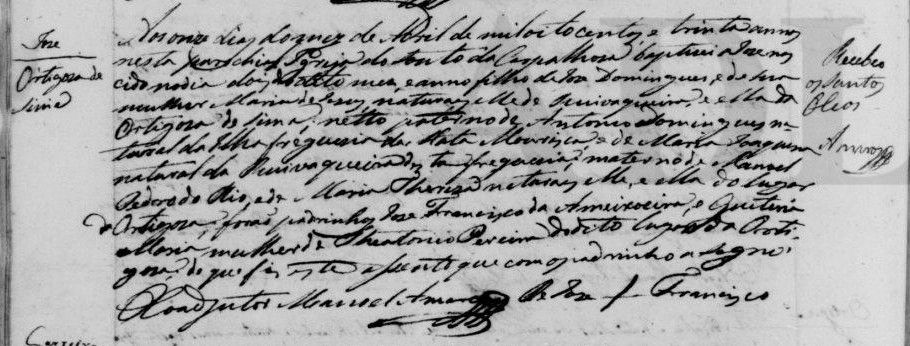 Joze
Ortigoza de
sima
Aos onze dias do mez de Abril de mil oito centos, e trinta annos
nesta parochial Igreja do Souto da Carpalhosa baptizei a Joze nas
cido no dia dois deste mez, e anno filho de Joze Domingues, e de sua
mulher Maria de Jesus, naturaes elle de Ruivaqueira, e ella da
Ortigoza de sima, netto paterno de Antonio Domingues na-
tural da Ilha freguezia da Mata Mourisca, e de Maria Joaquina
natural da Ruivaqueira desta freguezia, materno de Manoel
Pedro do Rio, e de Maria Thereza naturaes elle, e ella do lugar
da Ortigoza, forão padrinhos Joze Francisco da Ameixoeira, e Guiteria
Maria mulher de Theotonio Pereira do dito lugar da Orti-
goza, de que fiz este asento que com o padrinho asegno.
O Coadjutor Manoel Amaro
De Joze + Francisco
Recebeo
os Santos
Oleos
Amaro